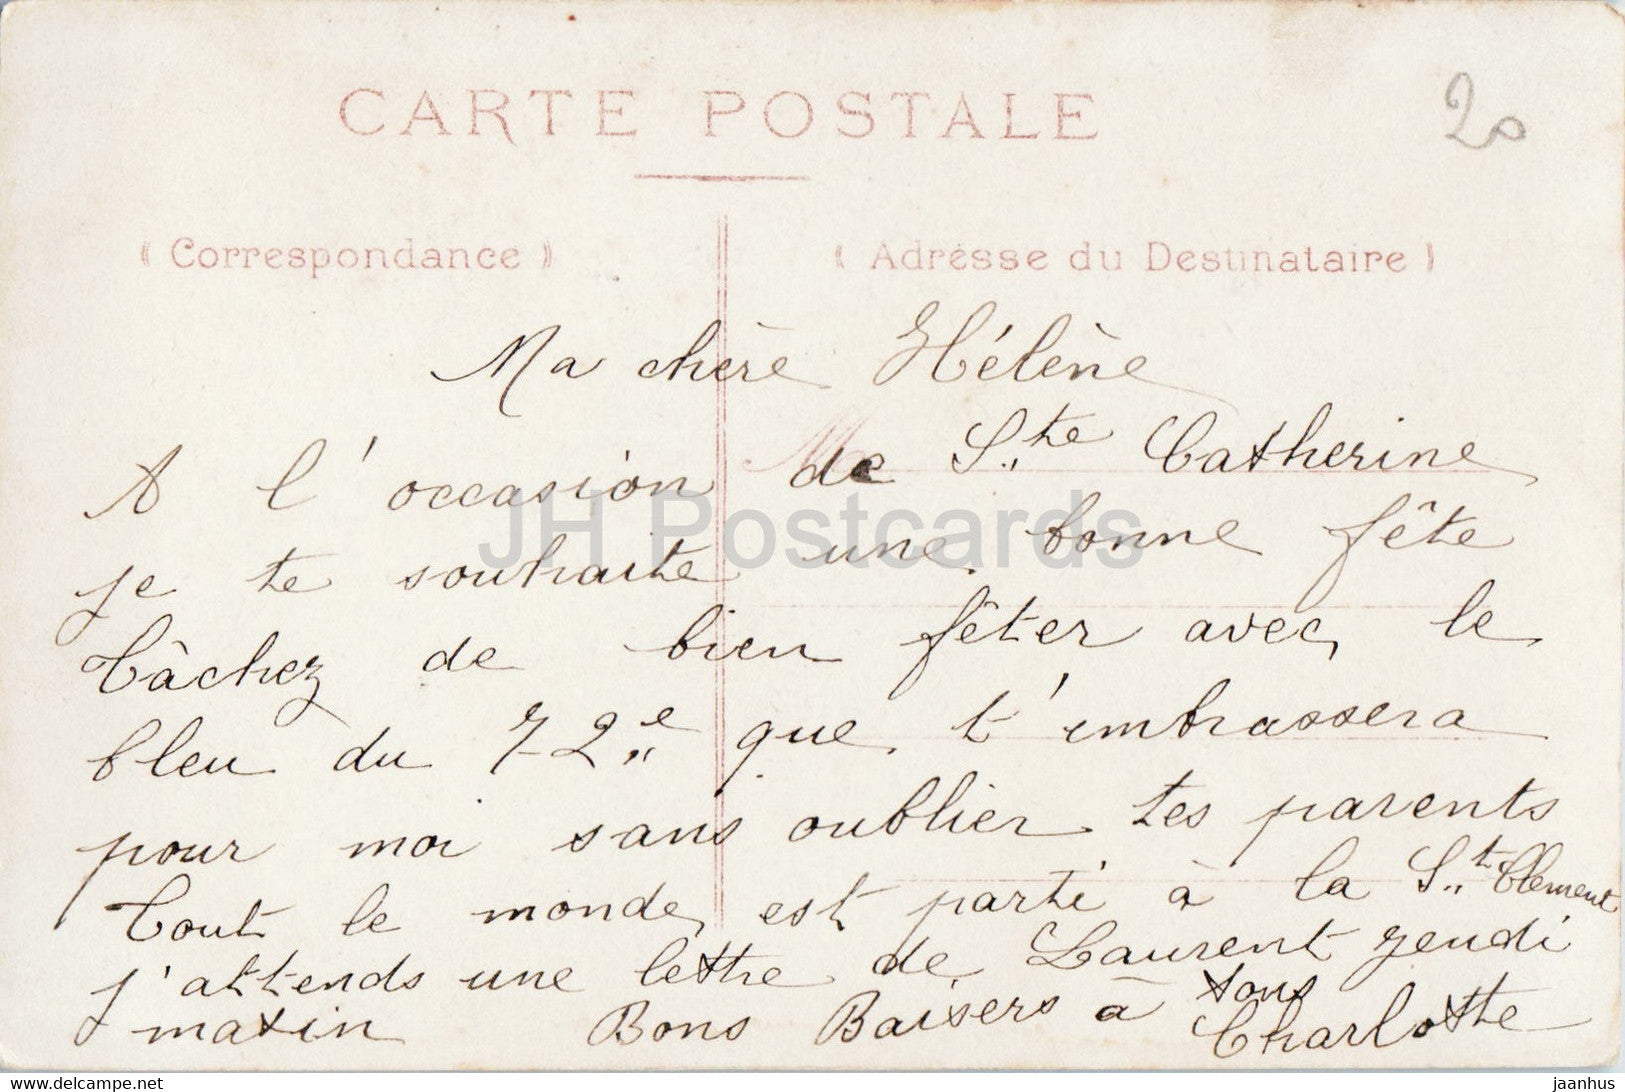 CARTE POSTALE
20
« Correspondance »
« Adresse du Destinataire »
Ma chère Hélène
A l'occasion de Ste Catherine
je te souhaite une bonne fête
Tâchez de bien fêter avec le
bleu du 72e que t'embrassera
pour moi sans oublier tes parents
Tout le monde est parti à la St Clement
j'attends une lettre de Laurent jeudi
matin Bons Baisers à tous
Charlotte
JH Postcards
jaanhus